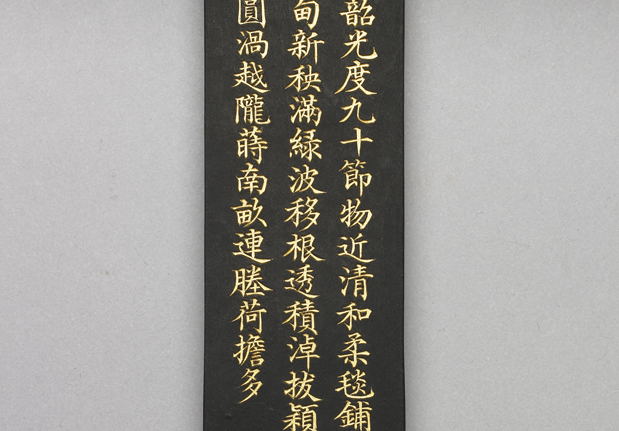 韶光度九十節物近清和柔毯鋪
甸新秧滿綠波移根透積淖拔穎
圓渦越隴蒔南畝連塍荷擔多